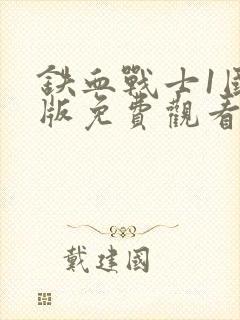 鉄血戰士1国
版免費觀看
戴建國